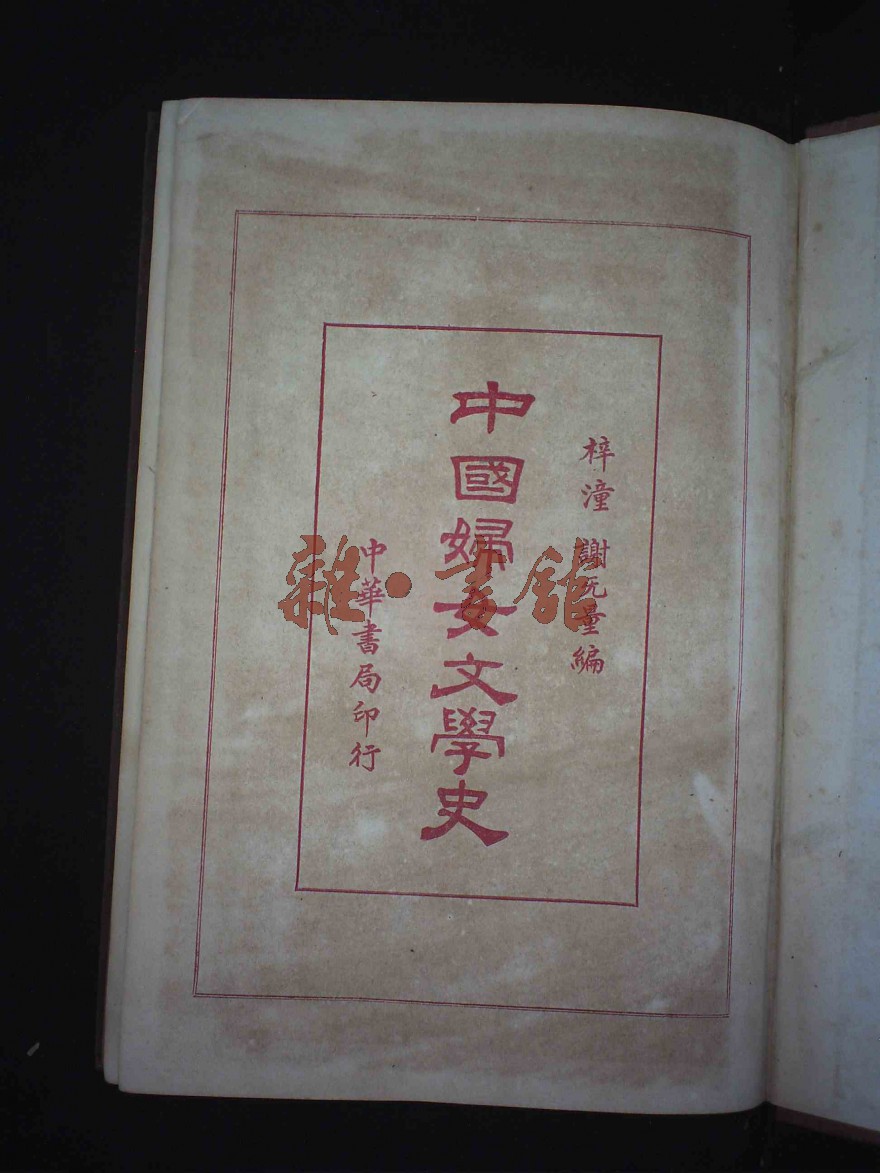 梓潼 謝无量編
中國婦女文學史
中華書局印行
雜·書館